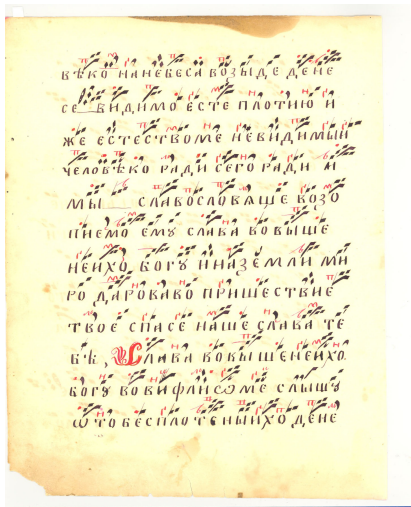 вѣко нанебеса возыде дене
се видимо есте плотию и
же естествоме невидимыи
человѣко ради сего ради и
мы славословяще возо
пиемо ему слава вовыше
неихо богу иназемли ми
ро дароваво пришествие
твое спасе наше слава те
бѣ, Слава вовышенеихо
богу вовифлиѡме слышу
ѿ тобесплотеныихо дене